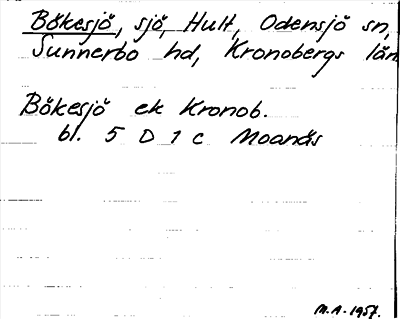 Bökesjö, sjö, Hult, Odensjö sn,
Sunnerbo hd, Kronobergs län
Bökesjö ek Kronob.
bl. 5 D 1 c Moanäs
M.A. 1957.